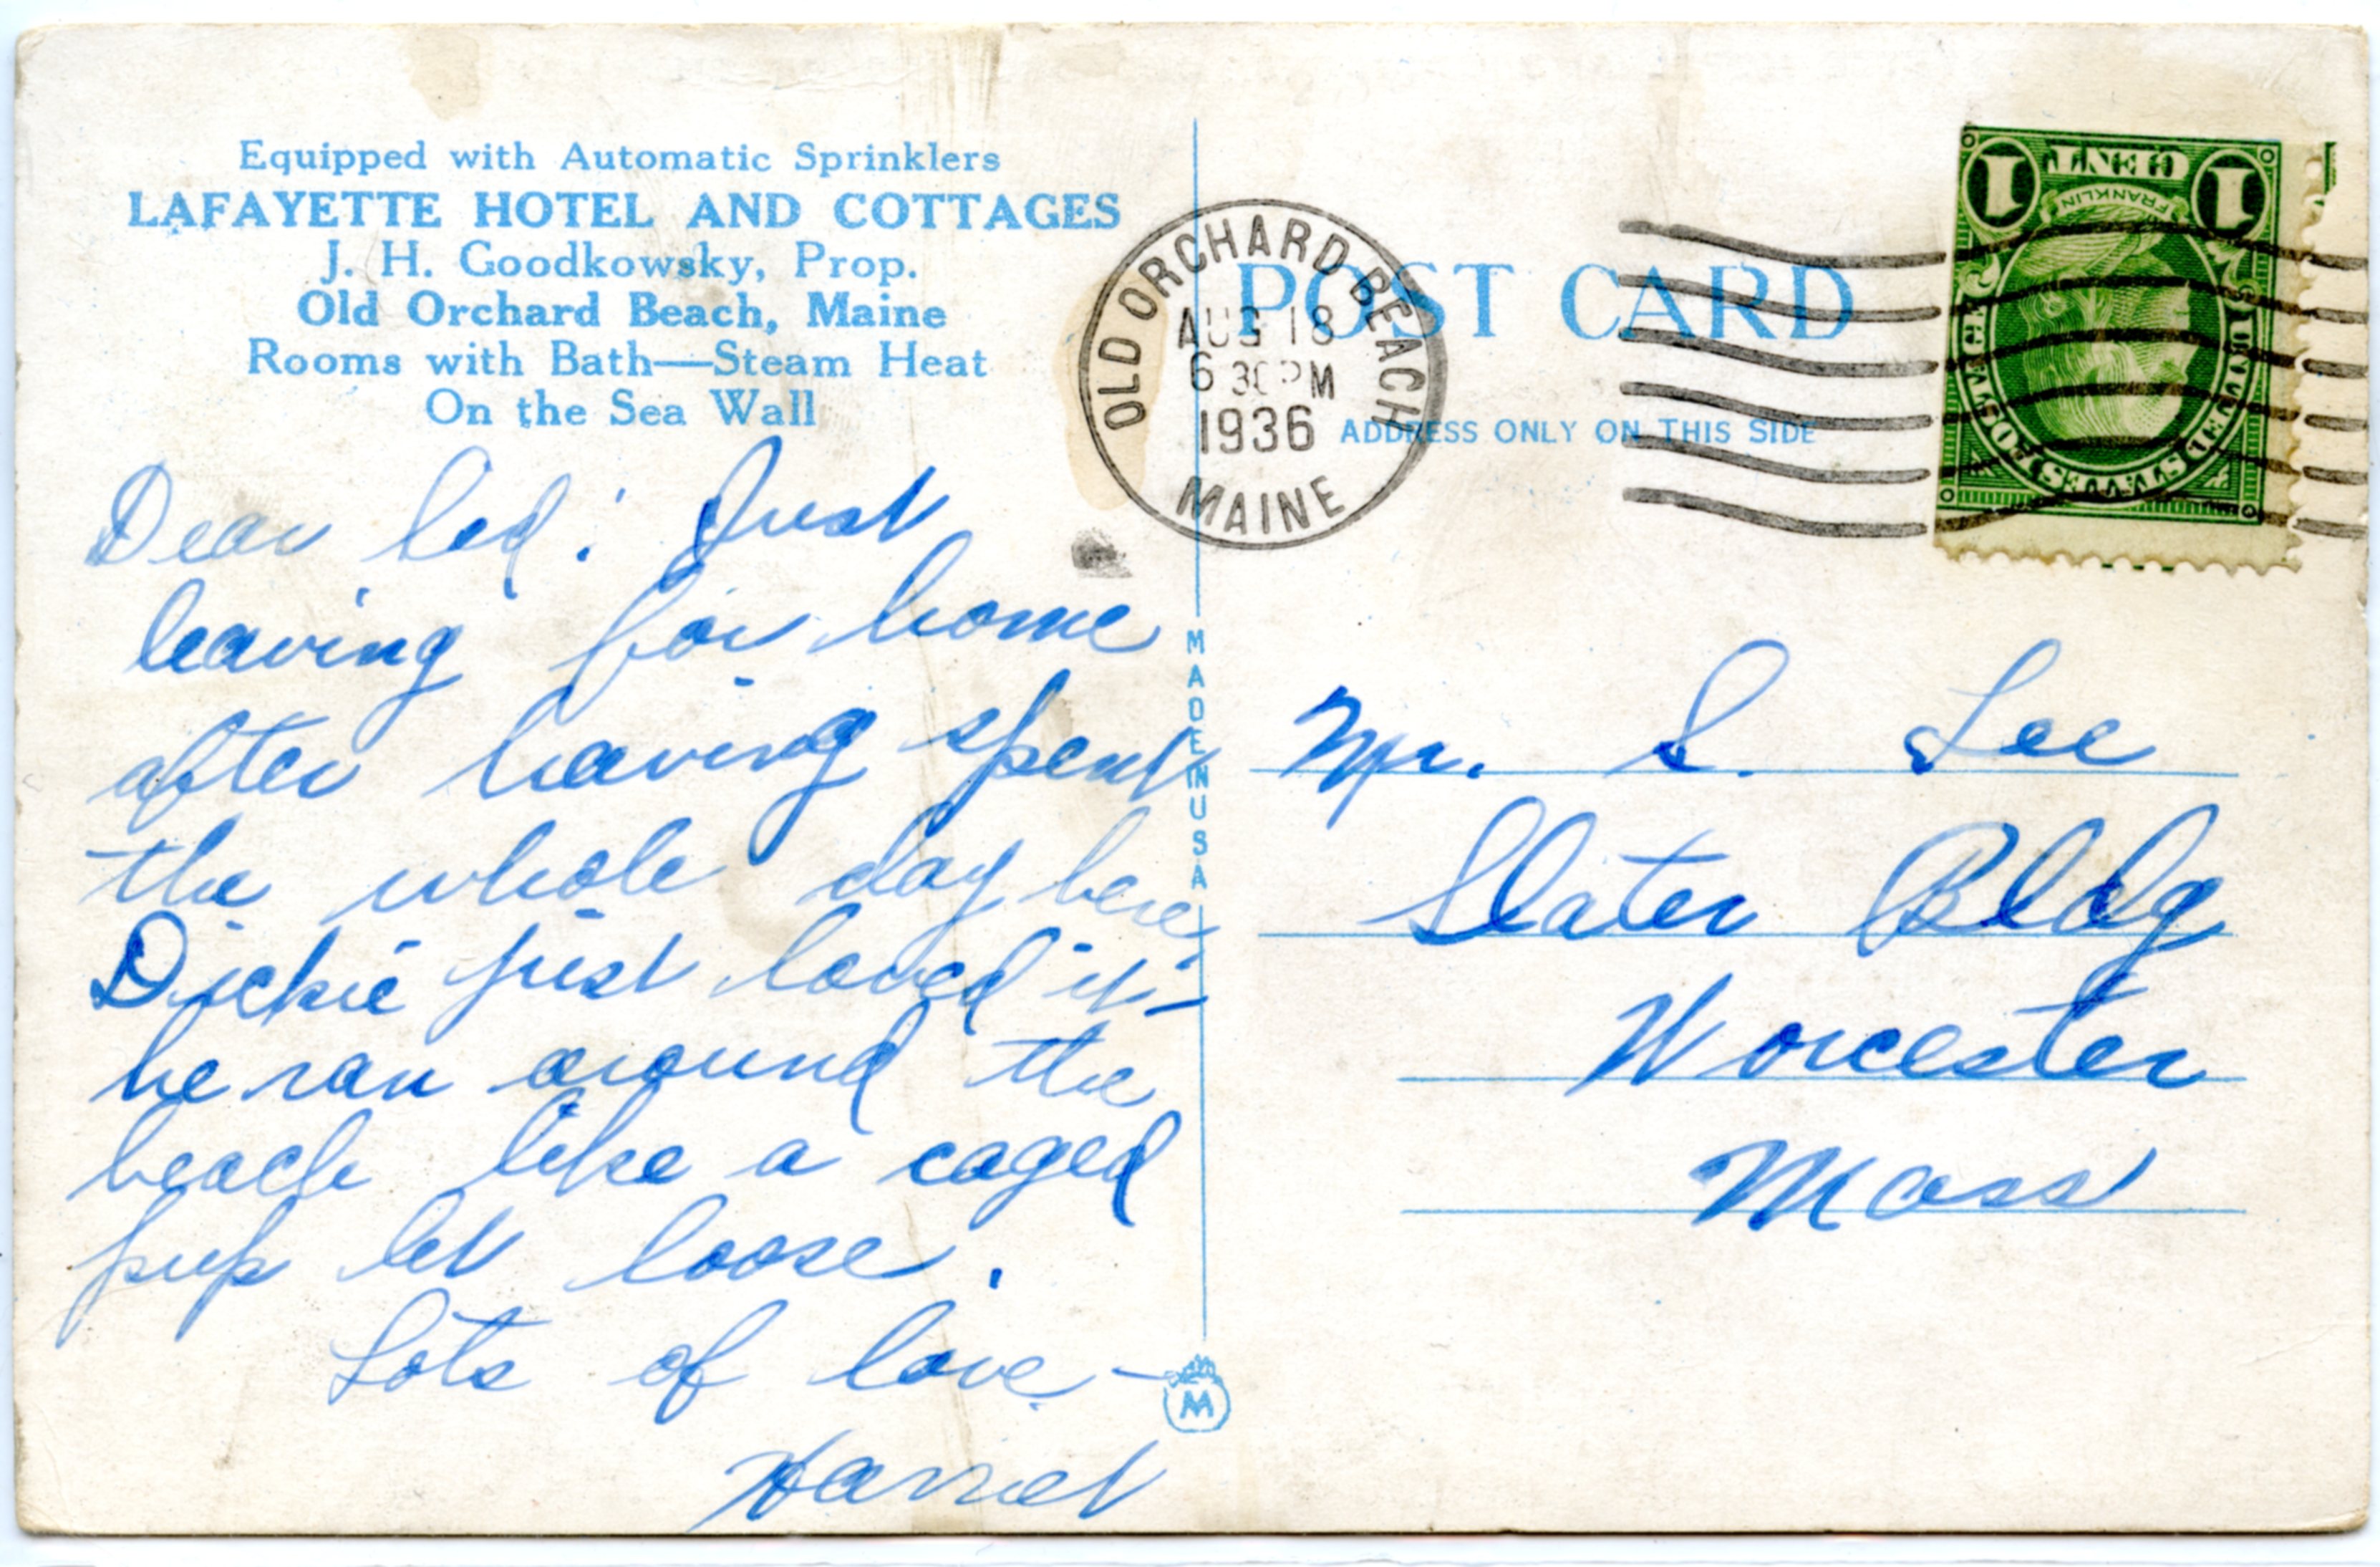 Equipped with Automatic Sprinklers
LAFAYETTE HOTEL AND COTTAGES
J. H. Goodkowsky, Prop.
Old Orchard Beach, Maine
Rooms with Bath—Steam Heat
On the Sea Wall
Dear : Just
leaving for home
after having spent
the whole day here
Dickie just loved it -
he ran around the
beach like a caged
pup let loose.
Lots of love -
Harriet
MADE IN USA
M
POST CARD
ADDRESS ONLY ON THIS SIDE
OLD ORCHARD BEACH
AUG 18
6 30 PM
1936
MAINE
1 CENT 1
FRANKLIN
UNITED STATES POSTAGE
Mr. S. Lee
Slater Bldg
Worcester
Mass